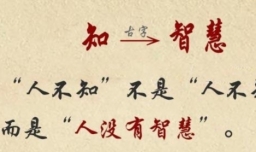 知 古字 智慧
“人不知”不是“人不
而是“人没有智慧”。